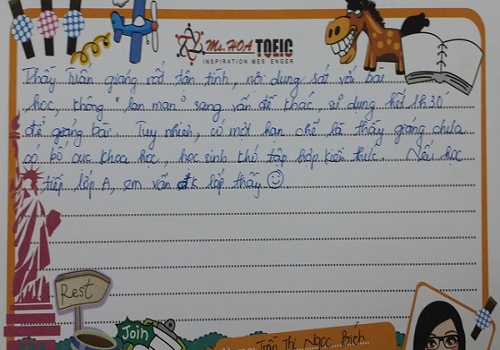 Ms. HOA TOEIC
INSPIRATION MESSENGER
Thầy Tuấn giảng rất tận tình, nội dung sát với bài
học, không "lan man" sang vấn đề khác, sử dụng hết 1h30'
để giảng bài. Tuy nhiên, có một hạn chế là thầy giảng chưa
có bố cục khoa học, học sinh khó tập hợp kiến thức. Nếu học
tiếp lớp A, em vẫn đk lớp thầy ☺
Rest
Join
Trần Thị Ngọc Bích